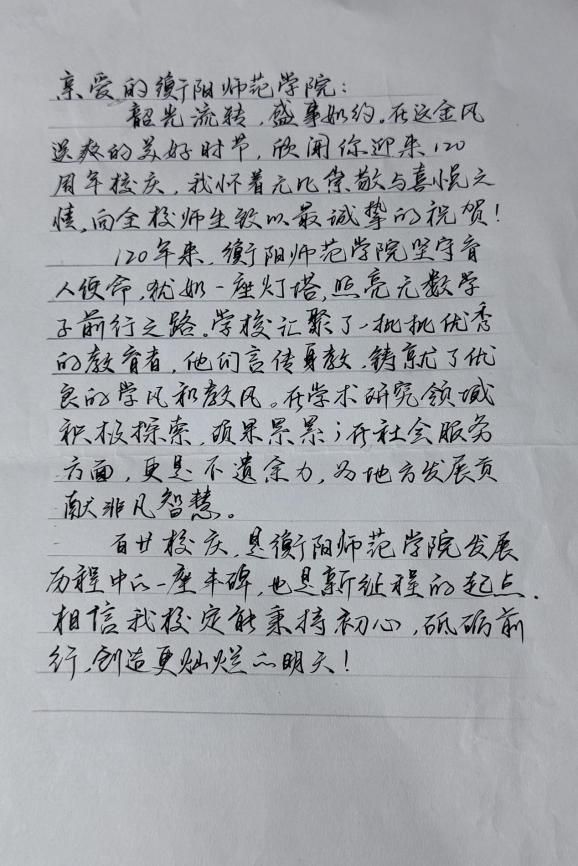 亲爱的衡阳师范学院：
韶光流转，盛事如约。在这金风
送爽的美好时节，欣闻你迎来120
周年校庆，我怀着无比崇敬与喜悦之
情，向全校师生致以最诚挚的祝贺！
120年来，衡阳师范学院坚守育
人使命，犹如一座灯塔，照亮无数学
子前行之路。学校汇聚了一批批优秀
的教育者，他们言传身教，铸就了优
良的学风和教风。在学术研究领域
积极探索，硕果累累；在社会服务
方面，更是不遗余力，为地方发展贡
献非凡智慧。
百廿校庆，是衡阳师范学院发展
历程中的一座丰碑，也是新征程的起点.
相信我校定能秉持初心，砥砺前
行，创造更灿烂的明天！